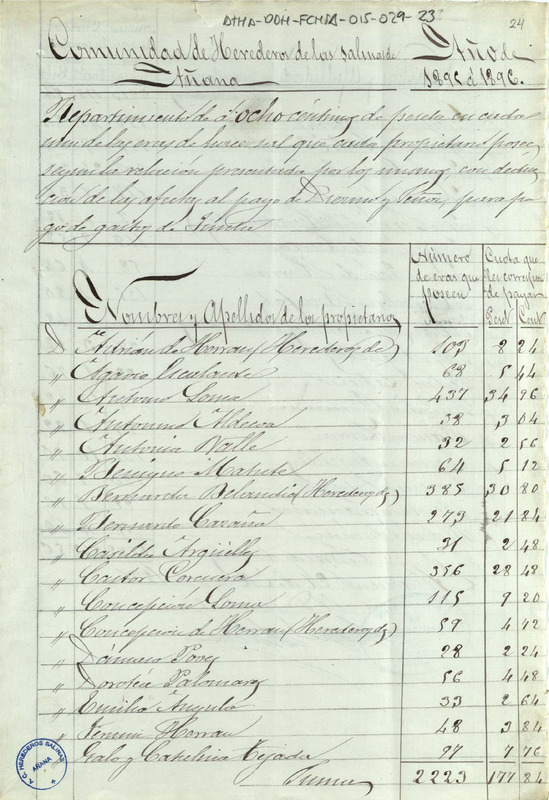 ATHA-DDH-FCHSA-015-029-23
24
Comunidad de Herederos de las Salinas de
Añana
Año de
1895 á 1896.
Repartimiento de á ocho céntimos de peseta en cada
una de las eras de hacer sal que cada propietario posee,
segun la relación presentada por los mismos con deduc-
ción de las afectas al pago de Diezmo y Peñon, para pa-
go de gastos de
Nombres y Apellidos de los propietarios
Número de eras que poseen
Cuota que les corresponde de pagar
Pest Cent
D Adrián de Herran (Herederos de) 103 8 24
" 68 5 44
" Antonio Loma 437 34 96
" Antonino Aldecoa 38 3 04
" Antonia Valle 32 2 56
" Benigno 64 5 12
" Bernarda Belandia (Herederos de) 385 30 80
" Bernardo Cazaña 273 21 84
" Casilda Argüelles 31 2 48
" Castor Corcuera 356 28 48
" Concepción Loma 115 9 20
" Concepción de Herran (Herederos de) 59 4 42
" Dámaso Poves 28 2 24
" Dorotea Palomares 56 4 48
" Emilia Angulo 33 2 64
" Fermin Herran 48 3 84
" Galo y Catalina Tejada 97 7 76
Suma 2223 177 84
A.C. HEREDEROS SALINAS
AÑANA